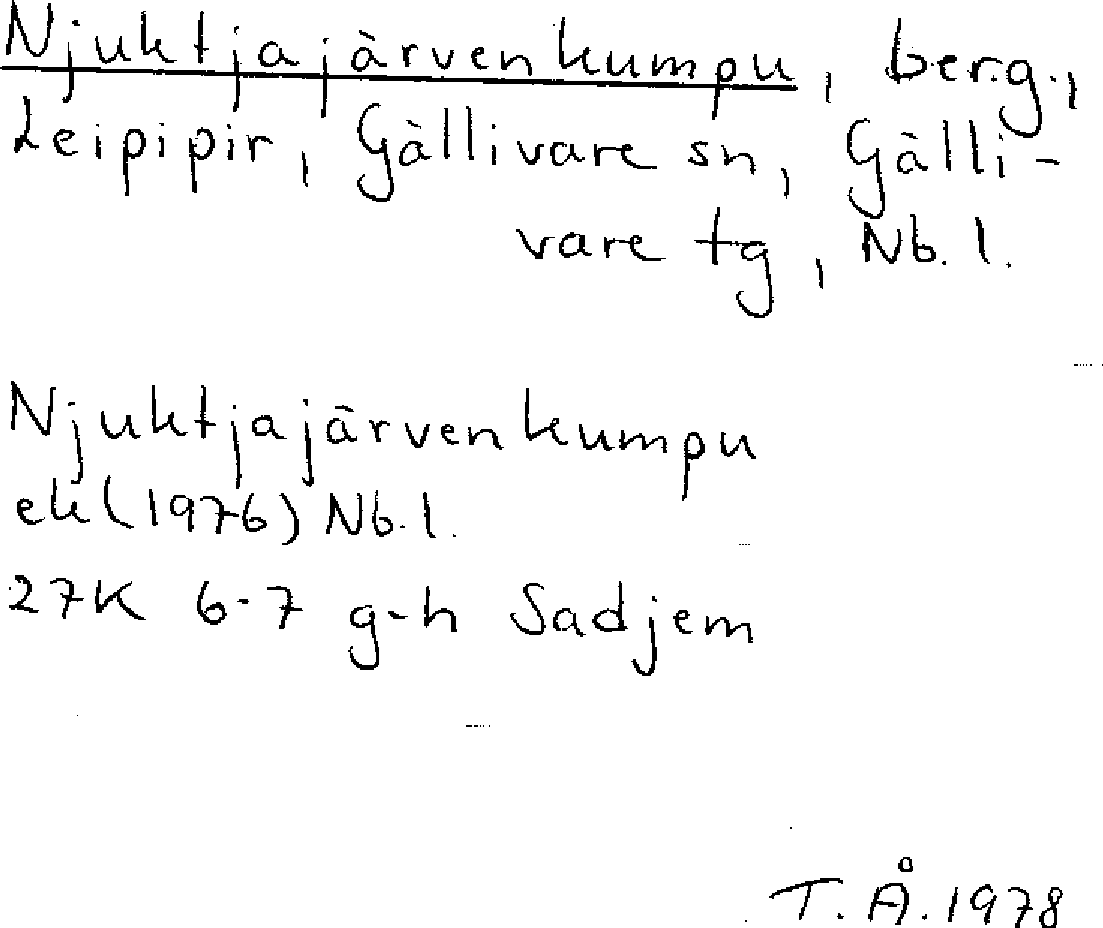 Njuktjajärvenkumpu, berg,
Leipipir, Gällivare sn, Gälli-
vare tg, Nb. l.
Njuktjajärvenkumpu
ek (1976) Nb. l.
27K 6-7 g-h Sadjem
T. Å. 1978